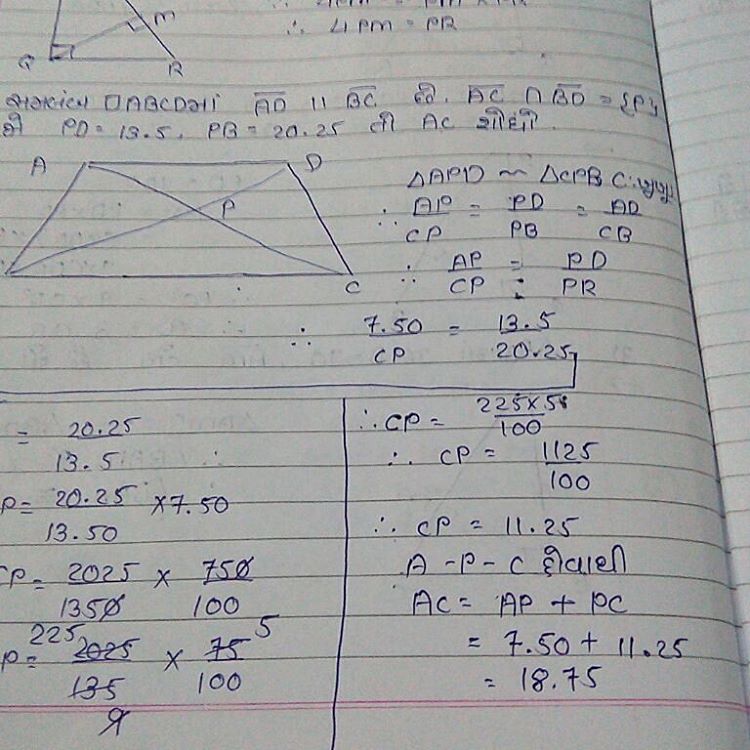 M
Q R
∴ ∠IPM = PR
□ABCDમાં AD || BC છે. AC ∩ BD = {P}
જો PD = 13.5, PB = 20.25 તો AC શોધો.
A D
P
C
ΔAPD ~ ΔCPB
∴ AP/CP = PD/PB = AD/CB
∴ AP/CP = PD/PB
∴ 7.50/CP = 13.5/20.25
= 20.25/13.5
P = 20.25/13.50 × 7.50
CP = 2025/1350 × 750/100
225 5
P = 2025/135 × 75/100
9
∴ CP = 225×5/100
∴ CP = 1125/100
∴ CP = 11.25
A - P - C હોવાથી
AC = AP + PC
= 7.50 + 11.25
= 18.75